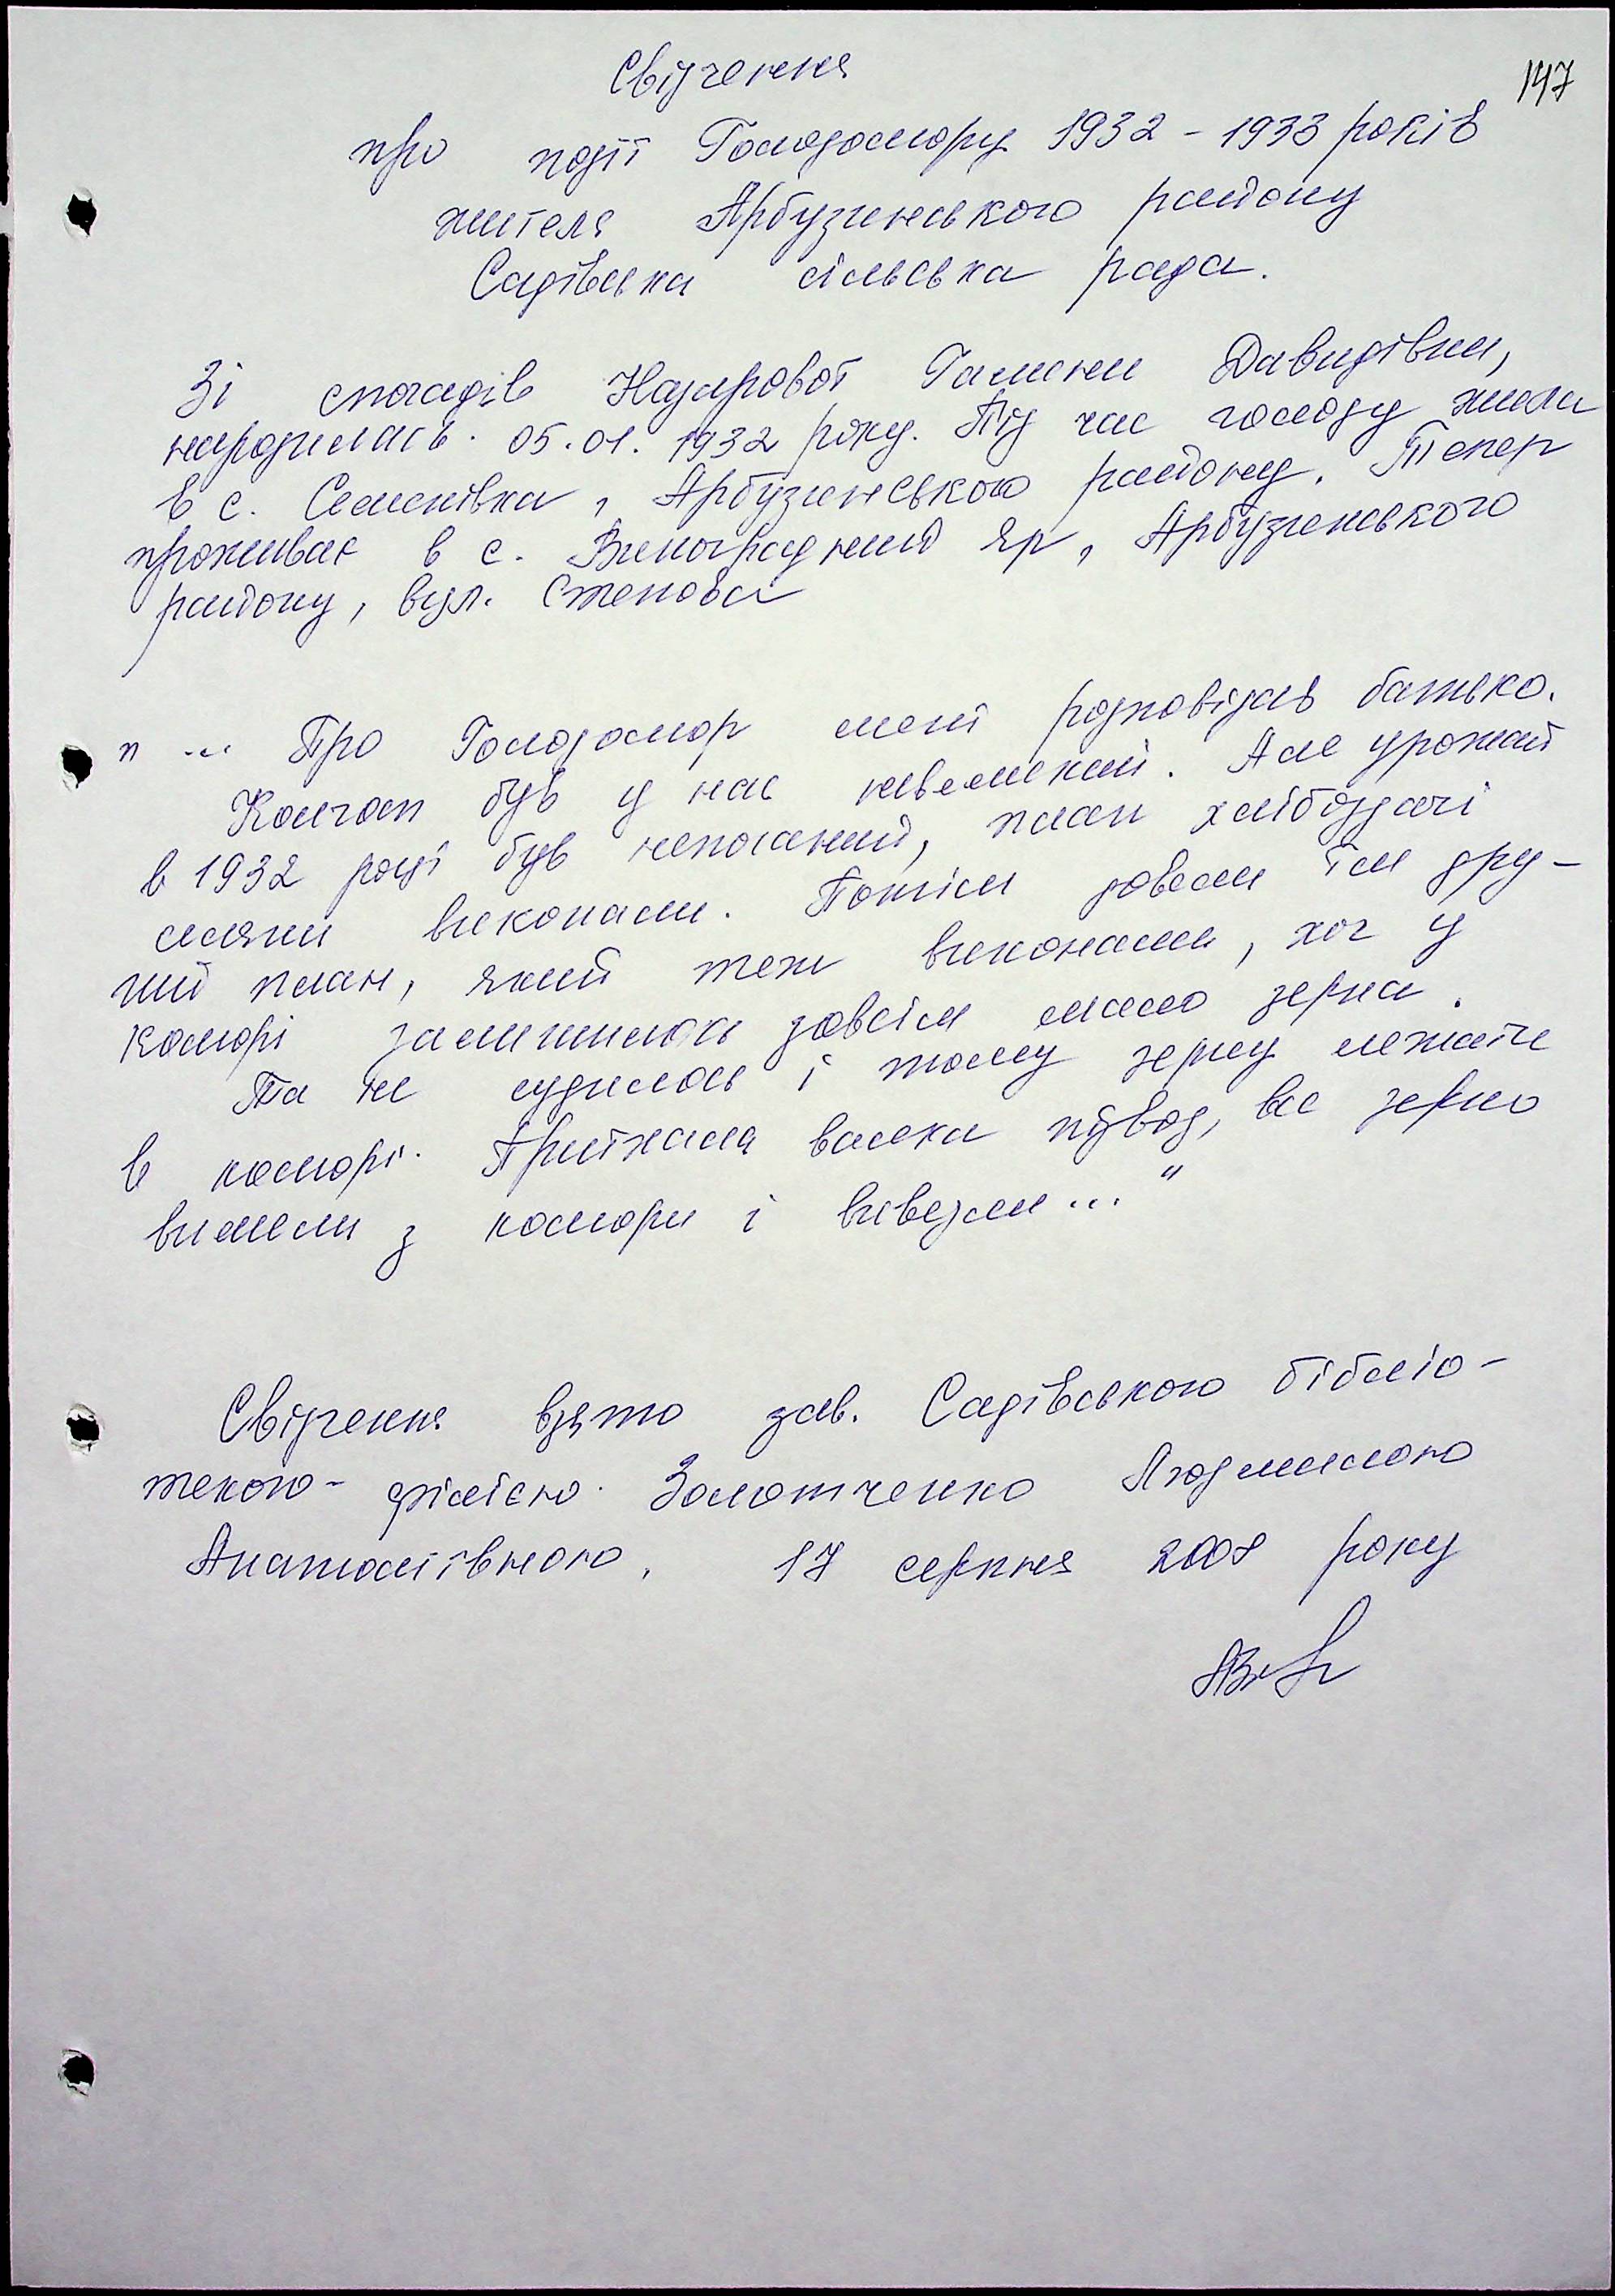 147
Свідчення
про події Голодомору 1932 - 1933 років
жителя Арбузинського району
Садівська сільська рада.
Зі спогадів Назарової Галини Давидівни,
народилась 05.01.1932 року. Під час голоду жила
в с. Семенівка, Арбузинського району. Тепер
проживає в с. Виноградний Яр, Арбузинського
району, вул. Степова
" ... Про Голодомор мені розповідав батько.
Колгосп був у нас невеликий. Але урожай
в 1932 році був непоганий, план хлібоздачі
селяни виконали. Потім довели їм дру-
гий план, який теж виконали, хоч у
коморі залишилось зовсім мало зерна.
Та не судилось і тому зерну лежати
в коморі. Приїхала валка підвод, все зерно
вимели з комори і вивезли..."
Свідчення взято зав. Садівською бібліо-
текою-філією Золотченко Людмилою
Анатоліївною, 17 серпня 2008 року